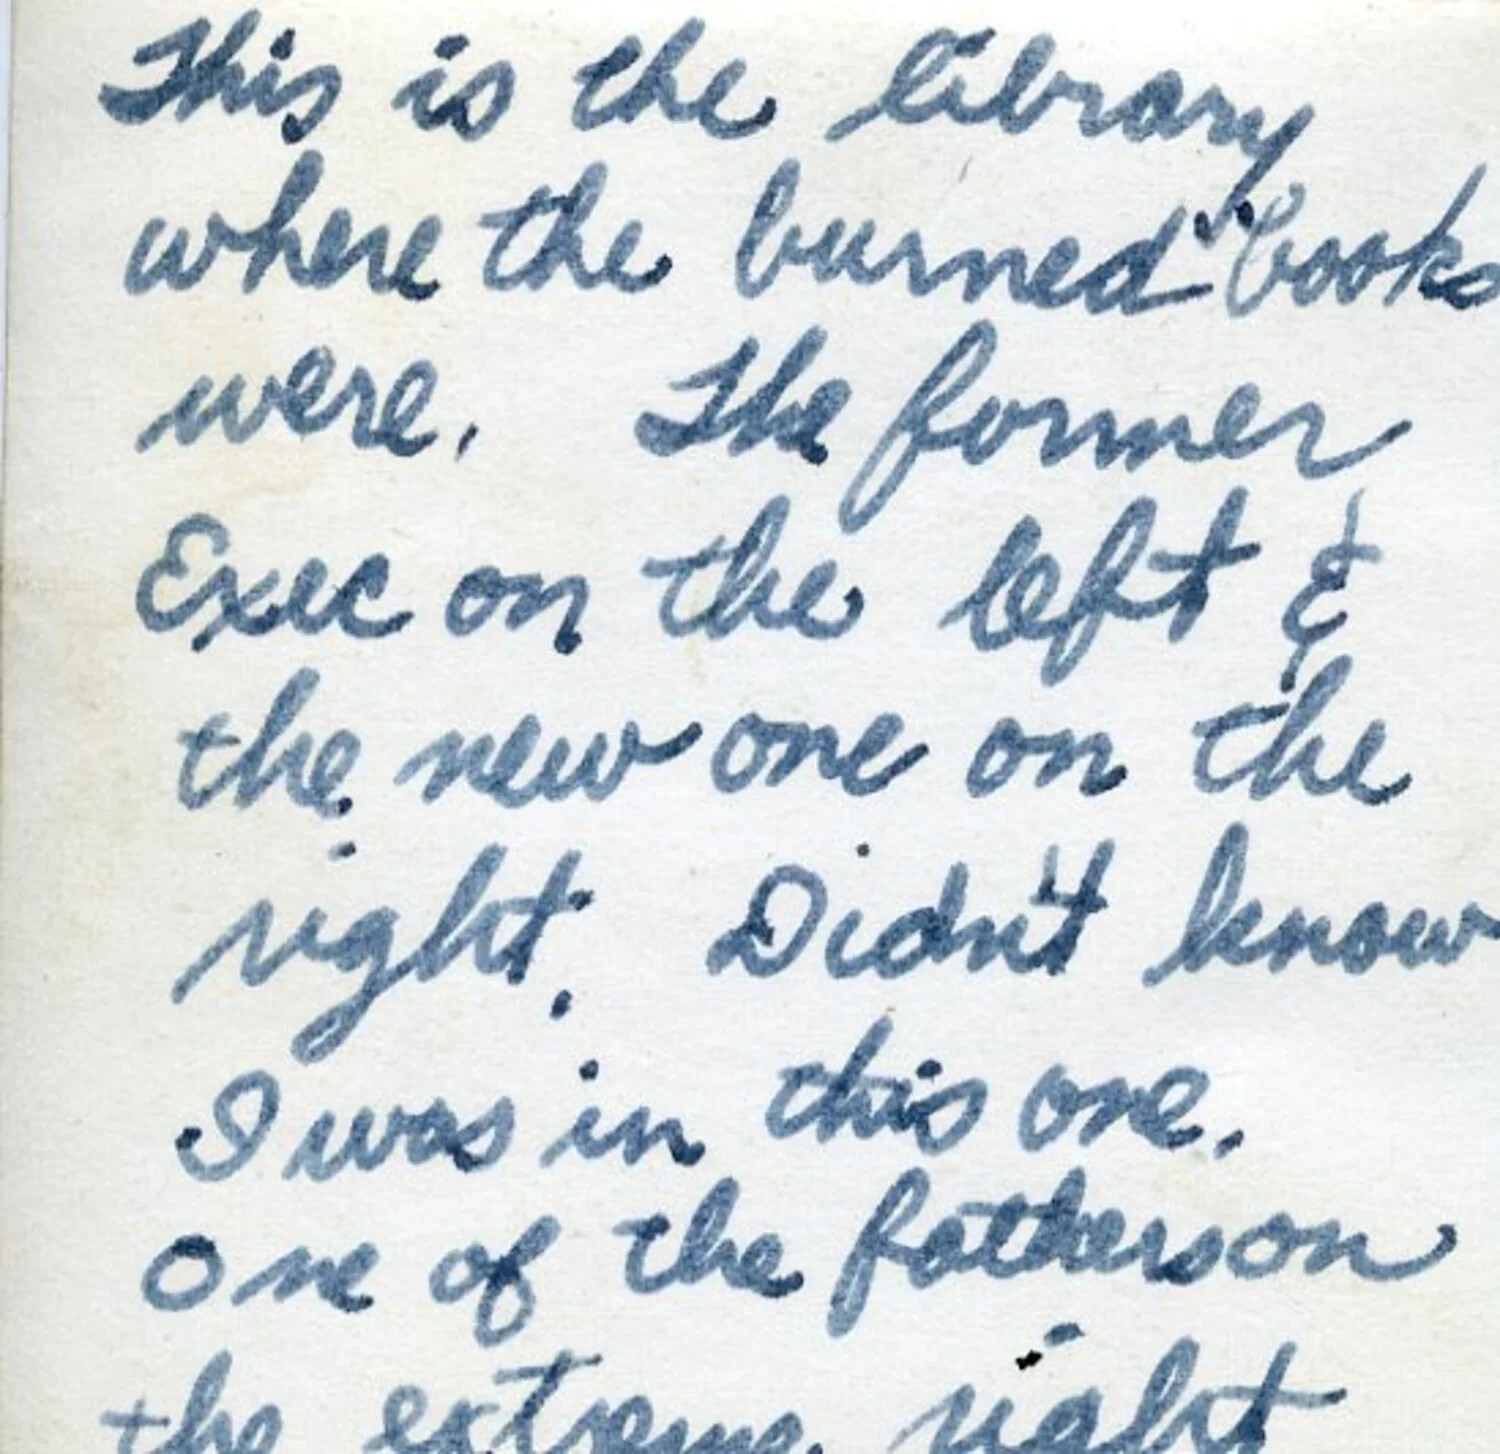 This is the library
where the burned books
were. The former
Exec on the left &
the new one on the
right. Didn't know
I was in this one.
One of the fathers on
the extreme right